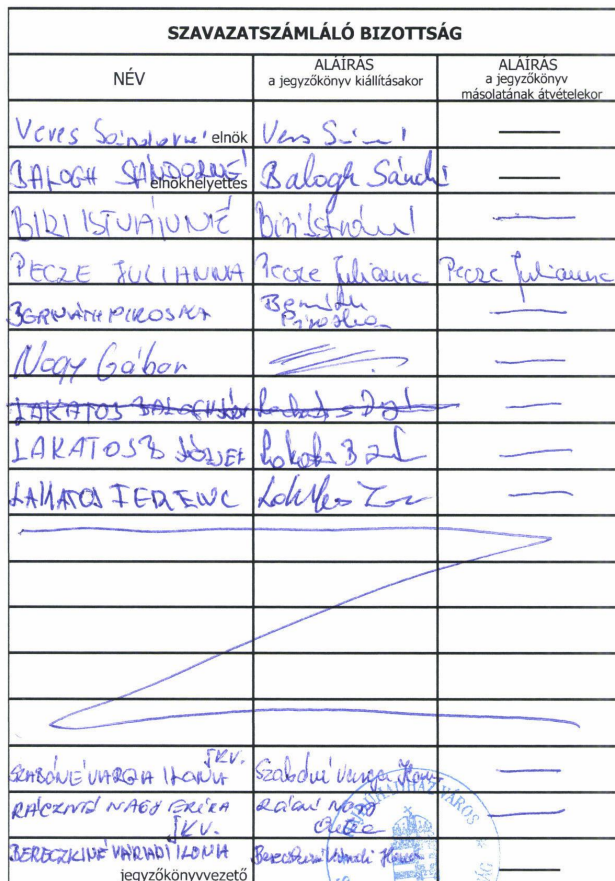 SZAVAZATSZÁMLÁLÓ BIZOTTSÁG
NÉV
ALÁÍRÁS
a jegyzőkönyv kiállításakor
ALÁÍRÁS
a jegyzőkönyv
másolatának átvételekor
Veres Sándorné elnök
BALOGH SÁNDORNÉ Balogh Sándor
elnökhelyettes
BIRI ISTVÁNNÉ Biri Istvánné
PECZE JULIANNA Pecze Julianna Pecze Julianna
BERNÁTH PIROSKA Bernáth
Piroska
Nagy Gábor
LAKATOS BALOGH
LAKATOS B JÓZSEF Lakatos B
LAKATOS FERENC
JKV.
SZABÓNÉ VARGA ILONA Szabóné Varga Ilona
RÁCZNÉ NAGY ERIKA Ráczné Nagy
Erika
JKV.
BERECZKINÉ VÁRADI ILONA Bereczkiné Váradi Ilona
jegyzőkönyvvezető
VÁROS